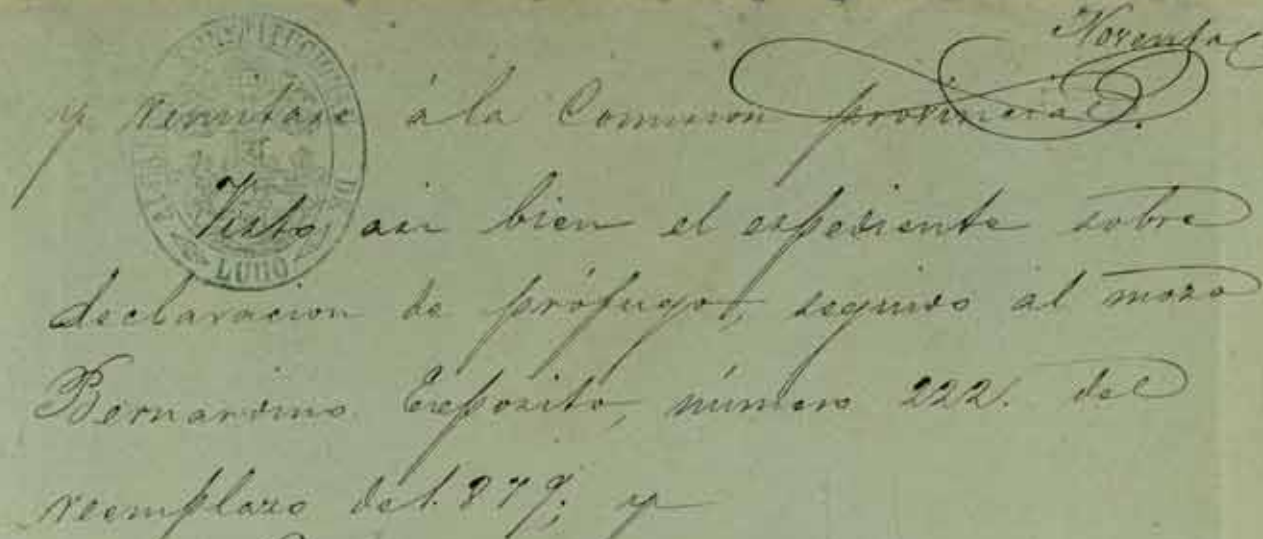 Noventa
y remitase á la Comision provincial.
Visto, asi bien el espediente sobre
declaracion de prófugo, seguido al mozo
Bernardino Expósito, número 222. del
reemplazo de 1.879; y
CONSTITUCIONAL DE
LUGO